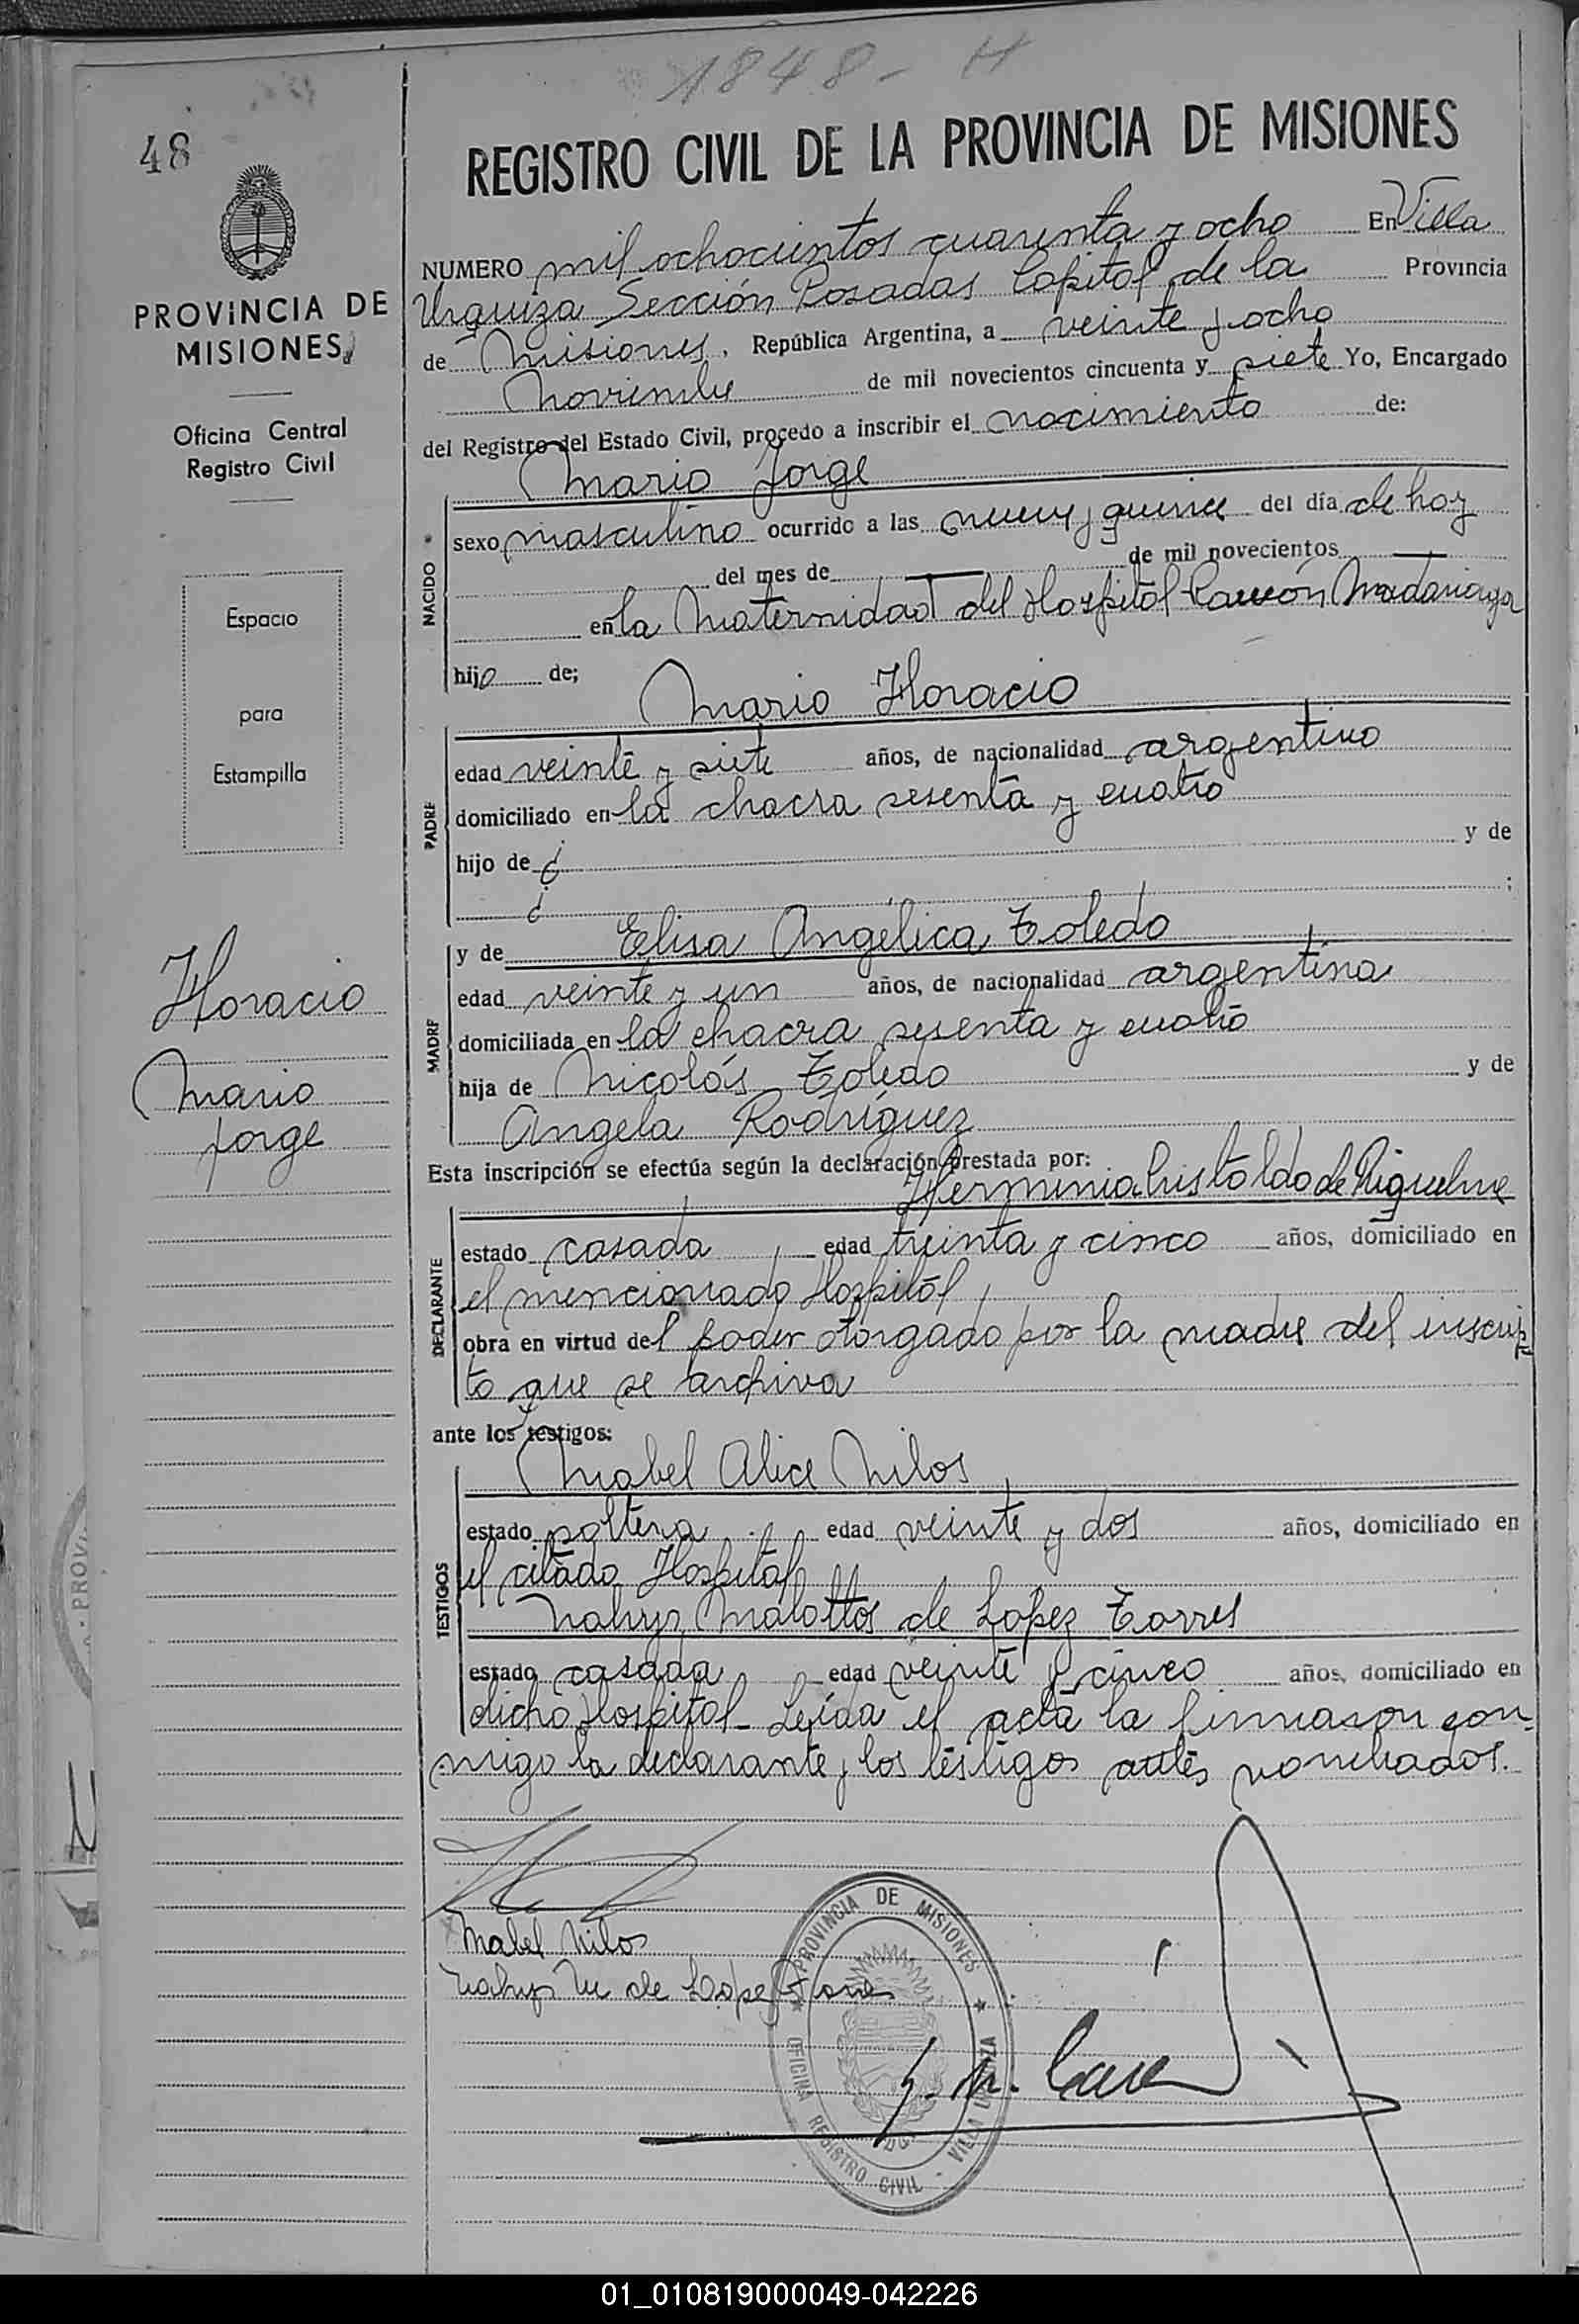 1848- H
48
REGISTRO CIVIL DE LA PROVINCIA DE MISIONES
PROVINCIA DE
MISIONES
Oficina Central
Registro Civil
Espacio
para
Estampilla
Horacio
Mario
Jorge
NUMERO mil ochocientos cuarenta y ocho En Villa
Urquiza Sección Posadas Capital de la Provincia
de Misiones, República Argentina, a veinte y ocho
Noviembre de mil novecientos cincuenta y siete Yo, Encargado
del Registro del Estado Civil, procedo a inscribir el nacimiento de:
Mario Jorge
NACIDO
sexo masculino ocurrido a las nueve y quince del día de hoy
del mes de — de mil novecientos —
en la Maternidad del Hospital Ramón Madariaga
hijo de;
Mario Horacio
PADRE
edad veinte y siete años, de nacionalidad argentino
domiciliado en la chacra sesenta y cuatro
hijo de ¿ y de
¿ ;
MADRE
y de Elisa Angélica Toledo
edad veinte y un años, de nacionalidad argentina
domiciliada en la chacra sesenta y cuatro
hija de Nicolás Toledo y de
Angela Rodríguez
Esta inscripción se efectúa según la declaración prestada por:
Herminia Cristaldo de Riquelme
DECLARANTE
estado casada, edad treinta y cinco años, domiciliado en
el mencionado Hospital,
obra en virtud del poder otorgado por la madre del inscrip-
to que se archiva
ante los testigos:
Mabel Alice Milos
TESTIGOS
estado soltera. edad veinte y dos años, domiciliado en
el citado Hospital
Nahyr Malottos de Lopez Torres
estado casada edad veinte y cinco años, domiciliado en
dicho Hospital- Leída el acta la firmaron con-
migo la declarante y los testigos antes nombrados.
Mabel Milos
Nahyr M de Lopez Torres
PROVINCIA DE MISIONES
OFICINA REGISTRO CIVIL - VILLA URQUIZA
01_010819000049-042226